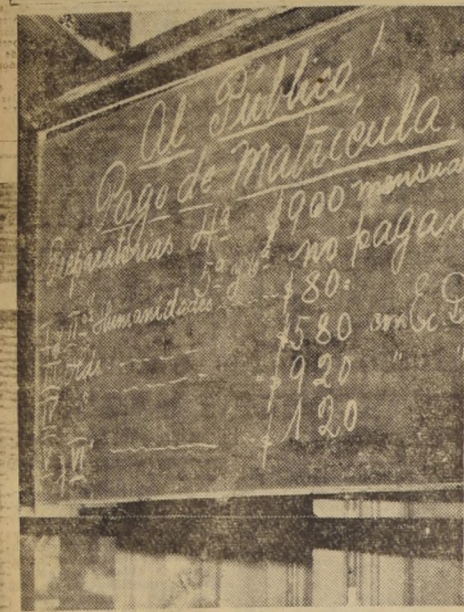 Al Público
Pago de Matrícula
Preparatorias 4ª $900 mensua
5ª y 6ª no pagan
I y IIº Humanidades ---- $80.
III ---- $580 con Ec. D
IV ---- $920 " "
V y VI ---- $120